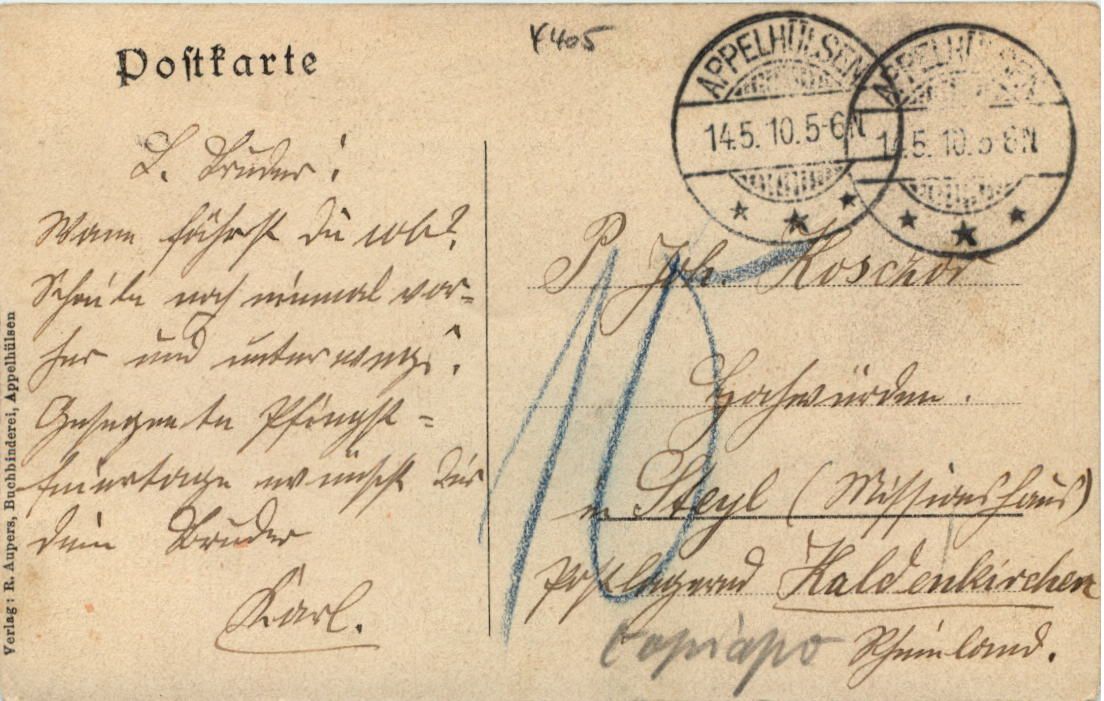 Postkarte
X405
APPELHÜLSEN
14.5.10.5-6N
APPELHÜLSEN
14.5.10.5-6N
L. Bruder!
Wann fährst Du ab?
Schreibe noch einmal vor-
her und unterwegs.
Gesegnete Pfingst=
feiertage wünscht Dir
Dein Bruder
Karl.
P Joh. Koschor
Hochwürden.
in Steyl (Missionshaus)
postlagernd Kaldenkirchen
Rheinland.
10
Copiapo
Verlag: R. Aupers, Buchbinderei, Appelhülsen